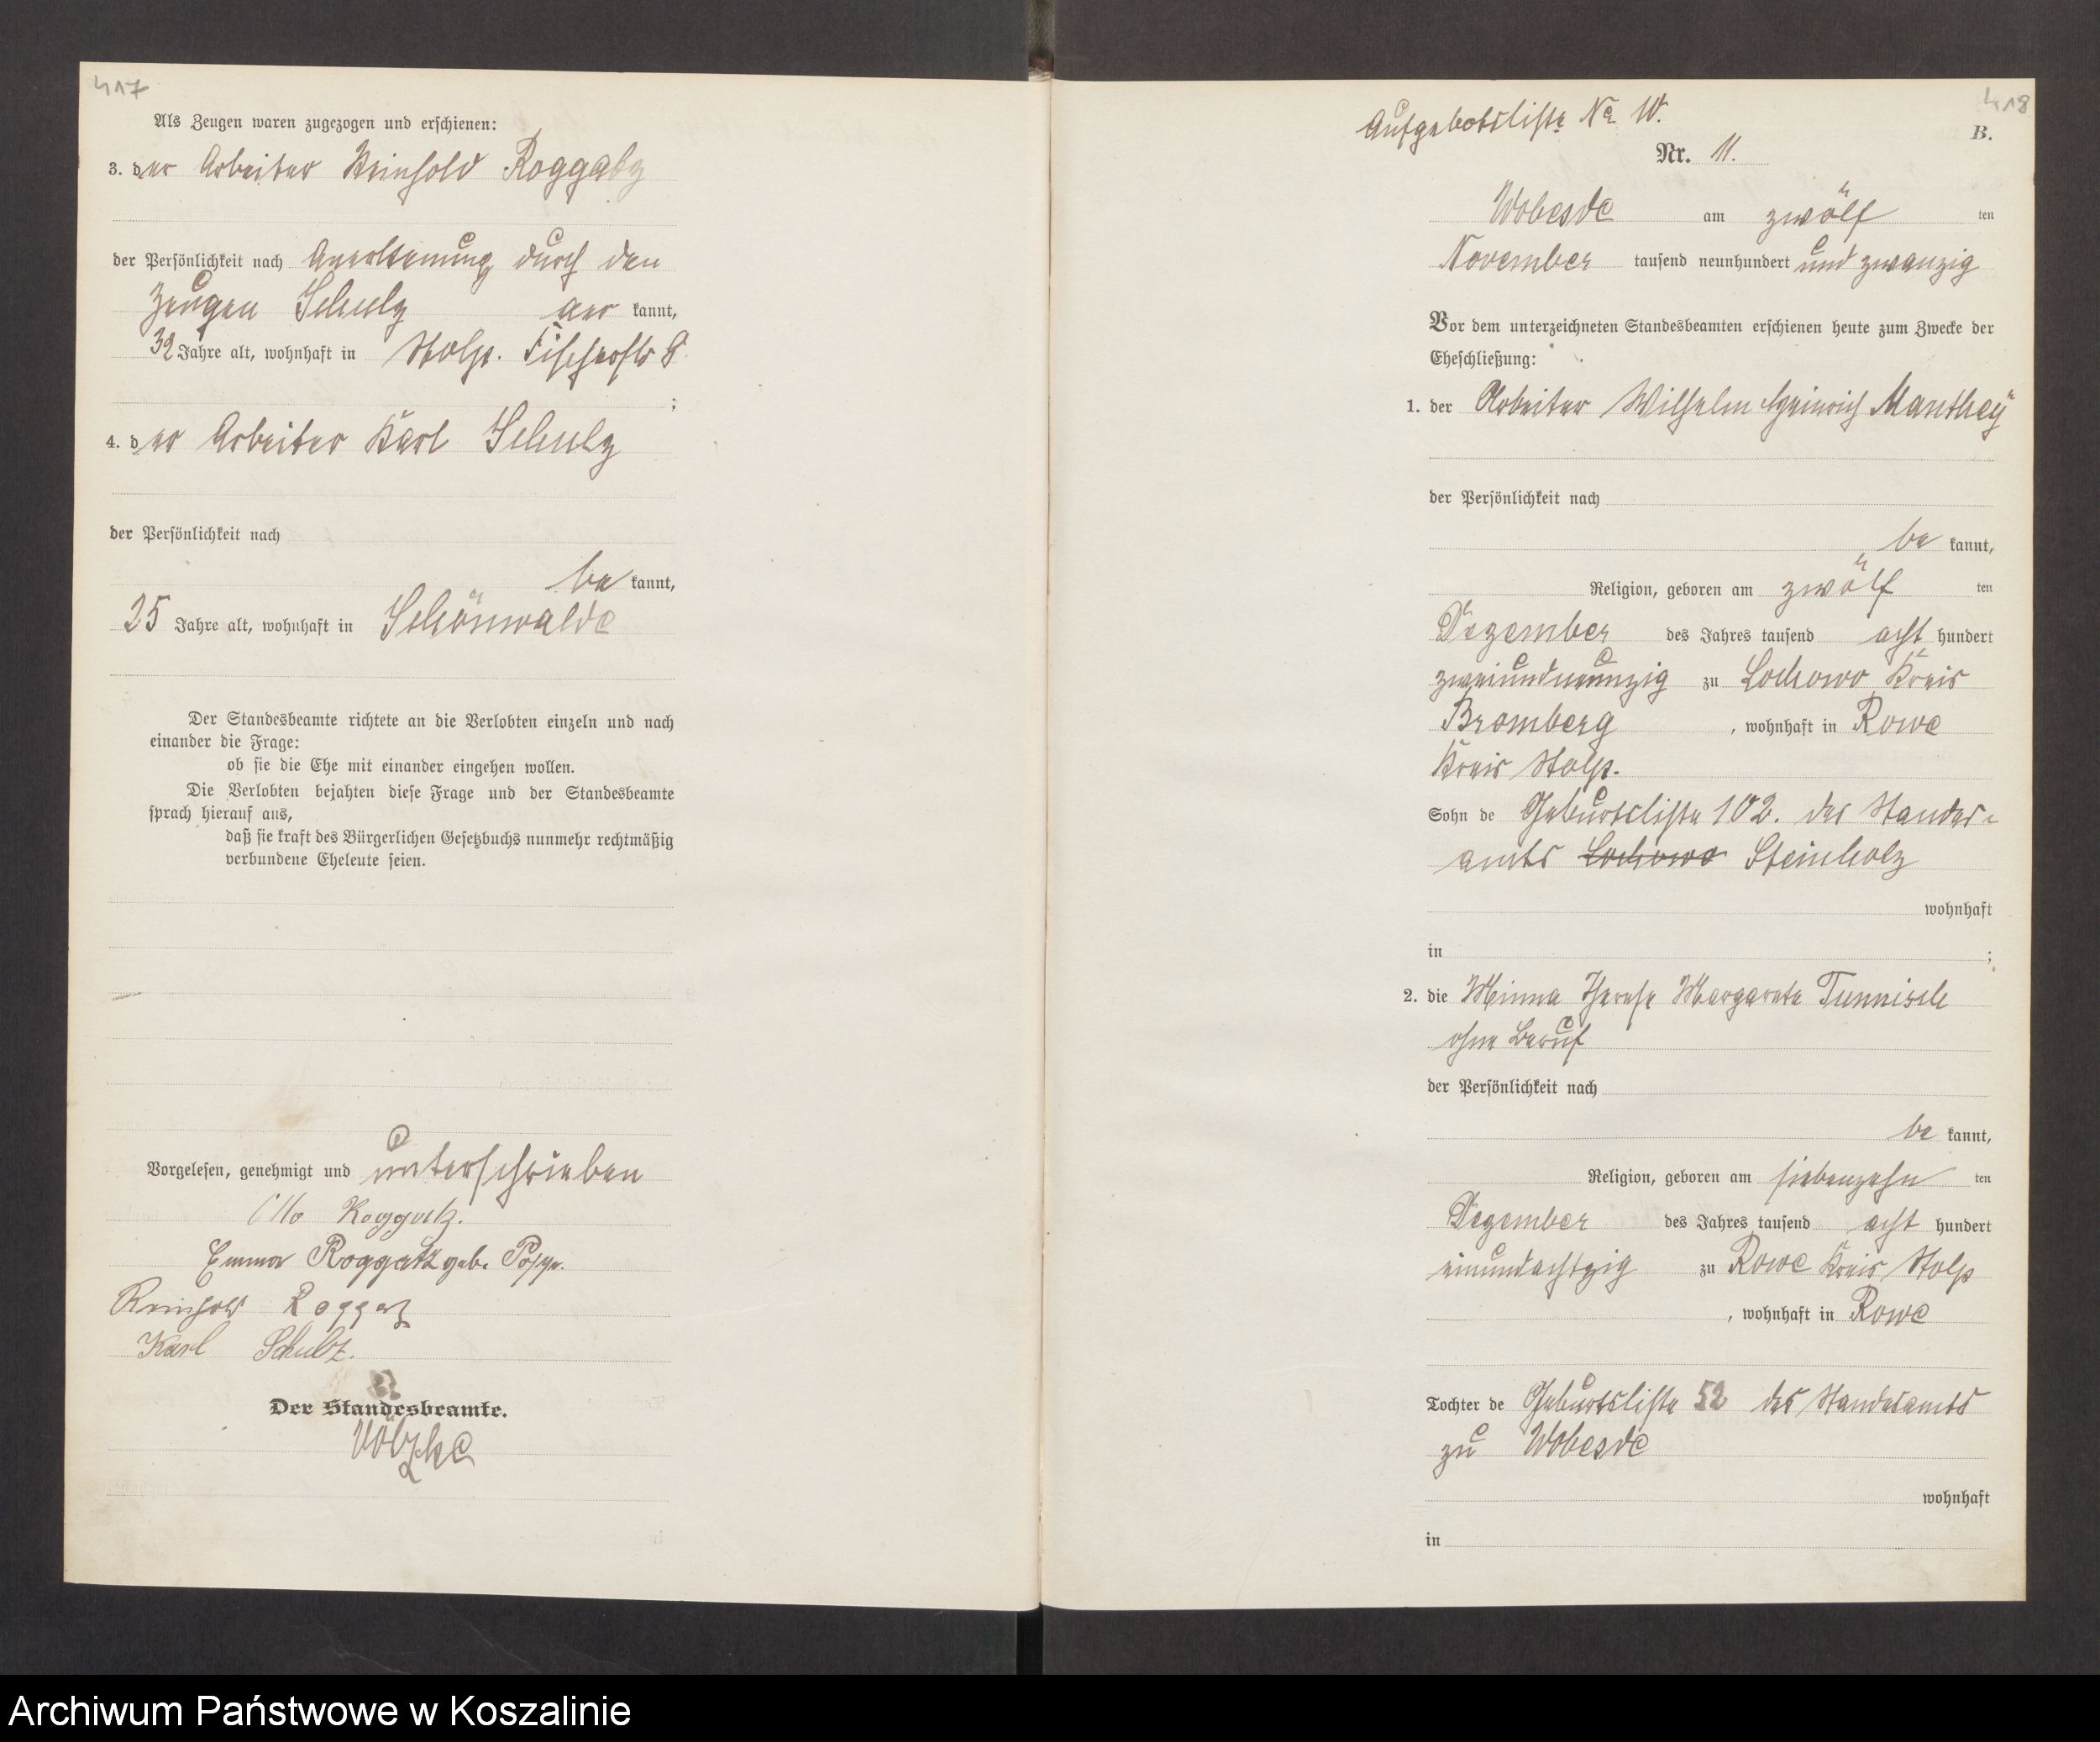 417
Als Zeugen waren zugezogen und erschienen:
3. der Arbeiter Reinhold Roggatz
der Persönlichkeit nach Anerkennung durch den
Zeugen Schulz aner kannt,
32 Jahre alt, wohnhaft in Stolp. Fischerstr 8
;
4. der Arbeiter Karl Schulz
der Persönlichkeit nach
be kannt,
25 Jahre alt, wohnhaft in Schönwalde
Der Standesbeamte richtete an die Verlobten einzeln und nach
einander die Frage:
ob sie die Ehe mit einander eingehen wollen.
Die Verlobten bejahten diese Frage und der Standesbeamte
sprach hierauf aus,
daß sie kraft des Bürgerlichen Gesetzbuchs nunmehr rechtmäßig
verbundene Eheleute seien.
Vorgelesen, genehmigt und unterschrieben
Otto Roggatz.
Emma Roggatz geb.
Reinhold Roggatz
Karl Schulz.
Der Standesbeamte.
Völzke
418
Aufgebotsliste No 10.
B.
Nr. 11.
Wobesde am zwölf ten
November tausend neunhundert und zwanzig
Vor dem unterzeichneten Standesbeamten erschienen heute zum Zwecke der
Eheschließung:
1. der Arbeiter Wilhelm Heinrich Manthey
der Persönlichkeit nach
be kannt,
Religion, geboren am zwölf ten
Dezember des Jahres tausend acht hundert
zweiundneunzig zu Lochowo Kreis
Bromberg , wohnhaft in Rowe
Kreis Stolp.
Sohn de Geburtsliste 102. des Standes-
amts Lochowo Steinholz
wohnhaft
in ;
2. die Minna Therese Margarete Tunnisch
ohne Beruf
der Persönlichkeit nach
be kannt,
Religion, geboren am siebenzehn ten
Dezember des Jahres tausend acht hundert
einundachtzig zu Rowe Kreis Stolp
, wohnhaft in Rowe
Tochter de Geburtsliste 52 des Standesamts
zu Wobesde
wohnhaft
in
Archiwum Państwowe w Koszalinie